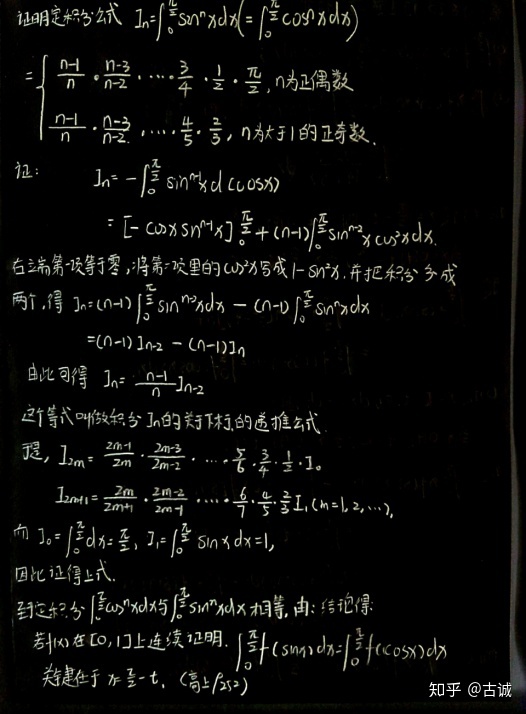 证明定积分公式 Iₙ=∫₀^{π/2} sinⁿxdx(=∫₀^{π/2} cosⁿxdx)
= { (n-1)/n · (n-3)/(n-2) · … · 3/4 · 1/2 · π/2, n为正偶数
(n-1)/n · (n-3)/(n-2) · … · 4/5 · 2/3, n为大于1的正奇数.
证: Iₙ=-∫₀^{π/2} sinⁿ⁻¹xd(cosx)
=[-cosxsinⁿ⁻¹x]₀^{π/2}+(n-1)∫₀^{π/2} sinⁿ⁻²xcos²xdx.
右端第一项等于零,将第二项里的cos²x写成1-sin²x.并把积分分成
两个,得 Iₙ=(n-1)∫₀^{π/2} sinⁿ⁻²xdx-(n-1)∫₀^{π/2} sinⁿxdx
=(n-1)Iₙ₋₂-(n-1)Iₙ
由此可得 Iₙ=(n-1)/n Iₙ₋₂
这个等式叫做积分Iₙ的关于下标的递推公式.
是, I₂ₘ=(2m-1)/2m · (2m-3)/(2m-2) · … · 5/6 · 3/4 · 1/2 · I₀
I₂ₘ₊₁=2m/(2m+1) · (2m-2)/(2m-1) · … · 6/7 · 4/5 · 2/3 I₁(m=1,2,…),
而 I₀=∫₀^{π/2} dx=π/2, I₁=∫₀^{π/2} sinxdx=1,
因此证得上式.
至定积分∫₀^{π/2} cosⁿxdx与∫₀^{π/2} sinⁿxdx相等,由:结论得:
若f(x)在[0,1]上连续证明. ∫₀^{π/2} f(sinx)dx=∫₀^{π/2} f(cosx)dx
关键在于 x=π/2-t. (高上P252)
知乎 @古诚